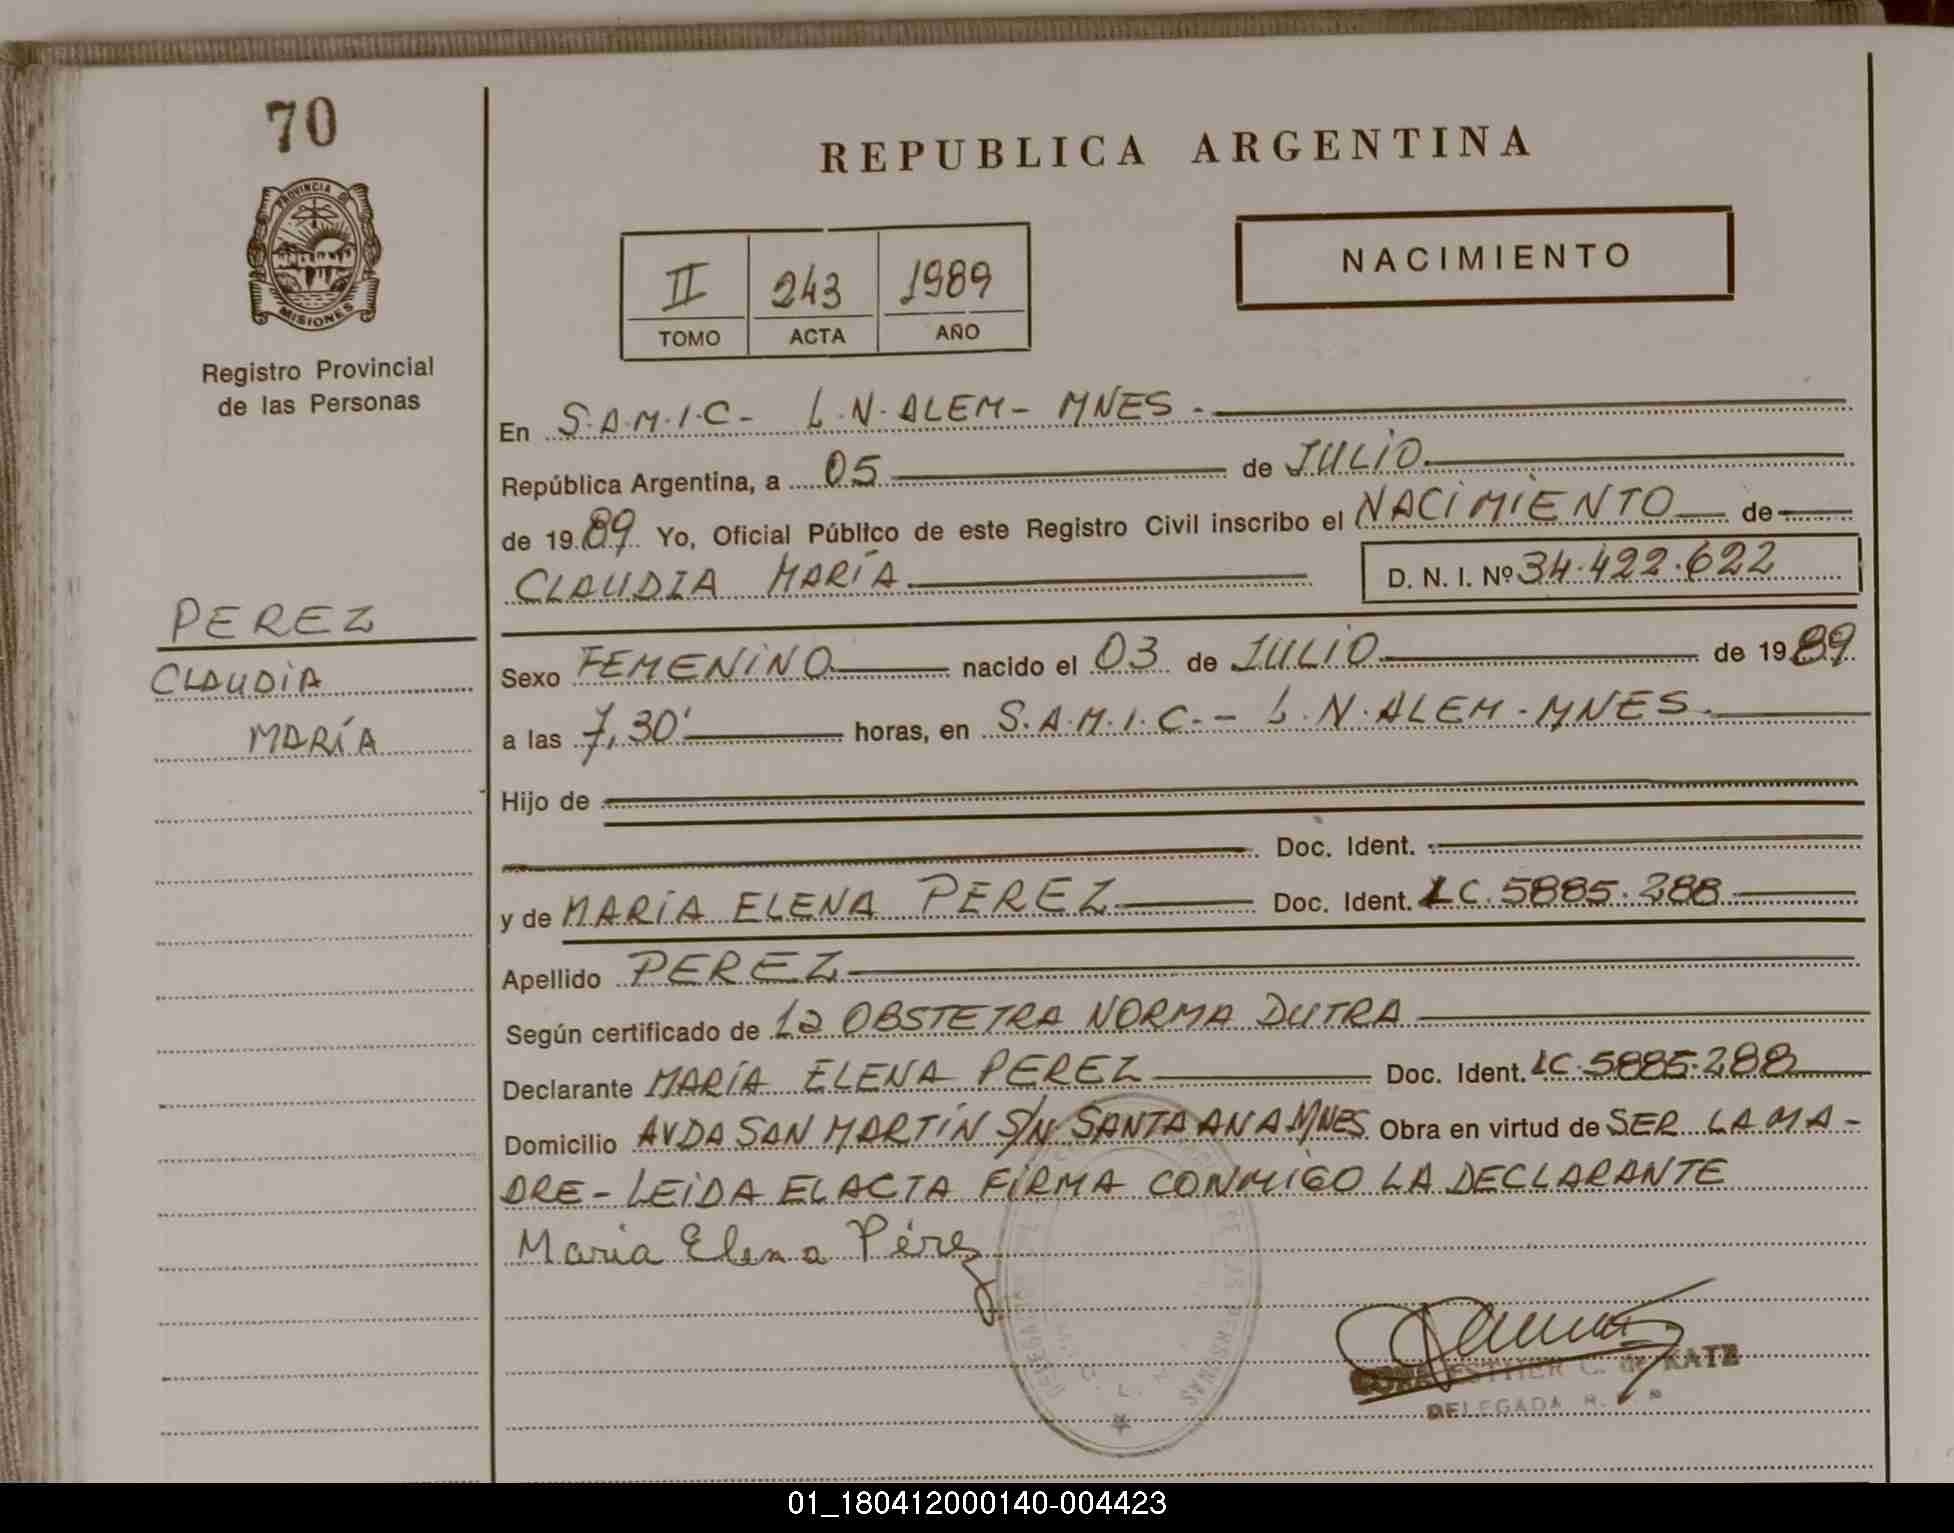 70
PROVINCIA DE
MISIONES
Registro Provincial
de las Personas
PEREZ
CLAUDIA
MARÍA
REPUBLICA ARGENTINA
NACIMIENTO
II 243 1989
TOMO ACTA AÑO
En S.A.M.I.C- L.N.ALEM- MNES.-
República Argentina, a 05 de JULIO
de 1989 Yo, Oficial Público de este Registro Civil inscribo el NACIMIENTO de
CLAUDIA MARÍA D. N. I. Nº 34.422.622
Sexo FEMENINO nacido el 03 de JULIO de 1989
a las 7,30' horas, en S.A.M.I.C.- L.N.ALEM-MNES.
Hijo de
Doc. Ident.
y de MARÍA ELENA PEREZ Doc. Ident. LC.5885.288
Apellido PEREZ
Según certificado de la OBSTETRA NORMA DUTRA
Declarante MARÍA ELENA PEREZ Doc. Ident. LC.5885.288
Domicilio AVDA SAN MARTÍN S/N SANTA ANA MNES Obra en virtud de SER LA MA-
DRE- LEIDA EL ACTA FIRMA CONMIGO LA DECLARANTE
Maria Elena Pérez
ESTHER C. de KATZ
DELEGADA R.
01_180412000140-004423